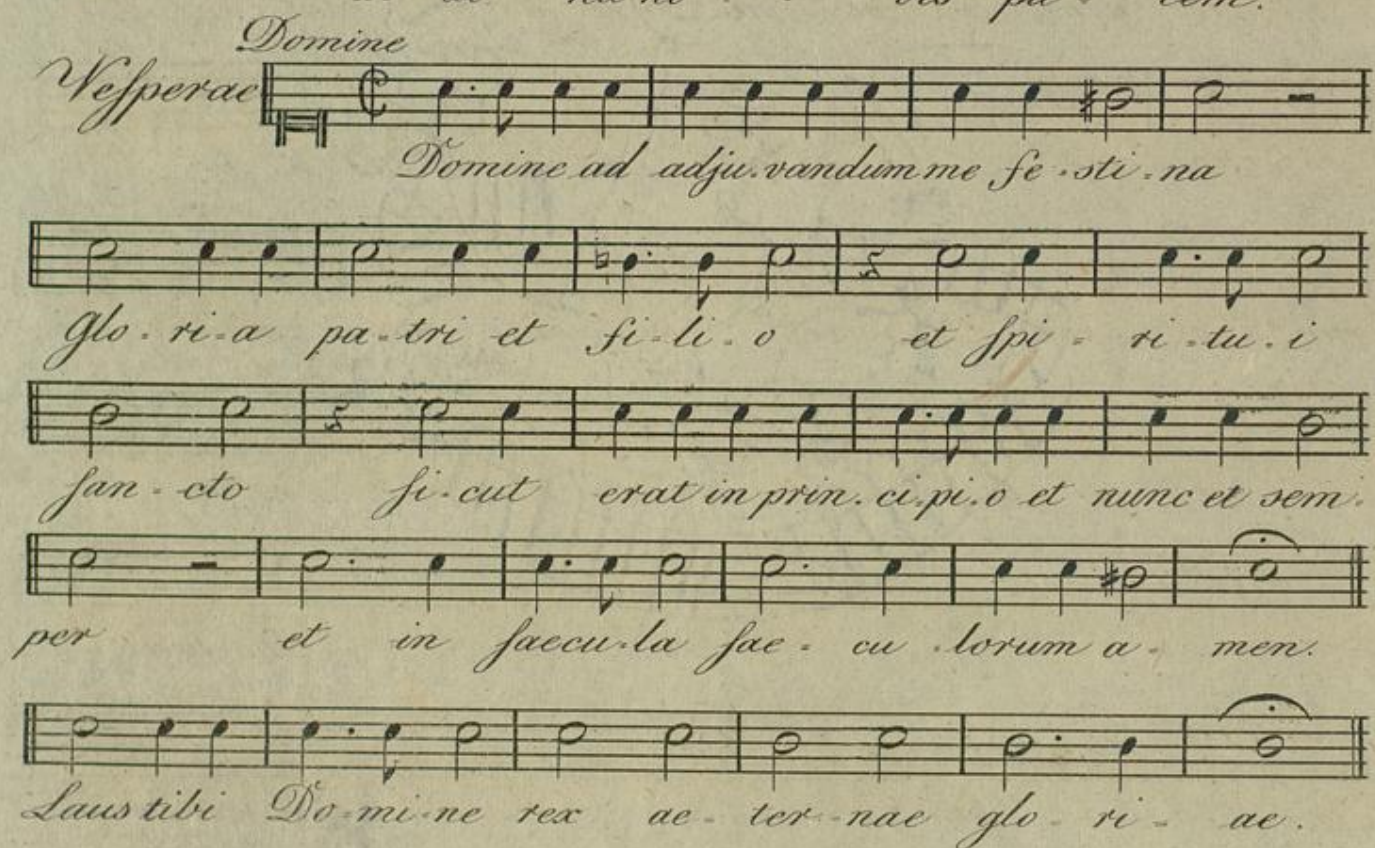 vis pa - cem.
Domine
Veſperae
Domine ad adju.vandum me fe.sti.na
Glo.ri.a pa-tri et fi-li.o et ſpi - ri.tu.i
ſan-cto ſi.cut erat in prin.ci.pi.o et nunc et sem.
per et in ſaecu.la ſae - cu.lorum a - men.
Laus tibi Do-mi-ne rex ae - ter-nae glo - ri - ae.